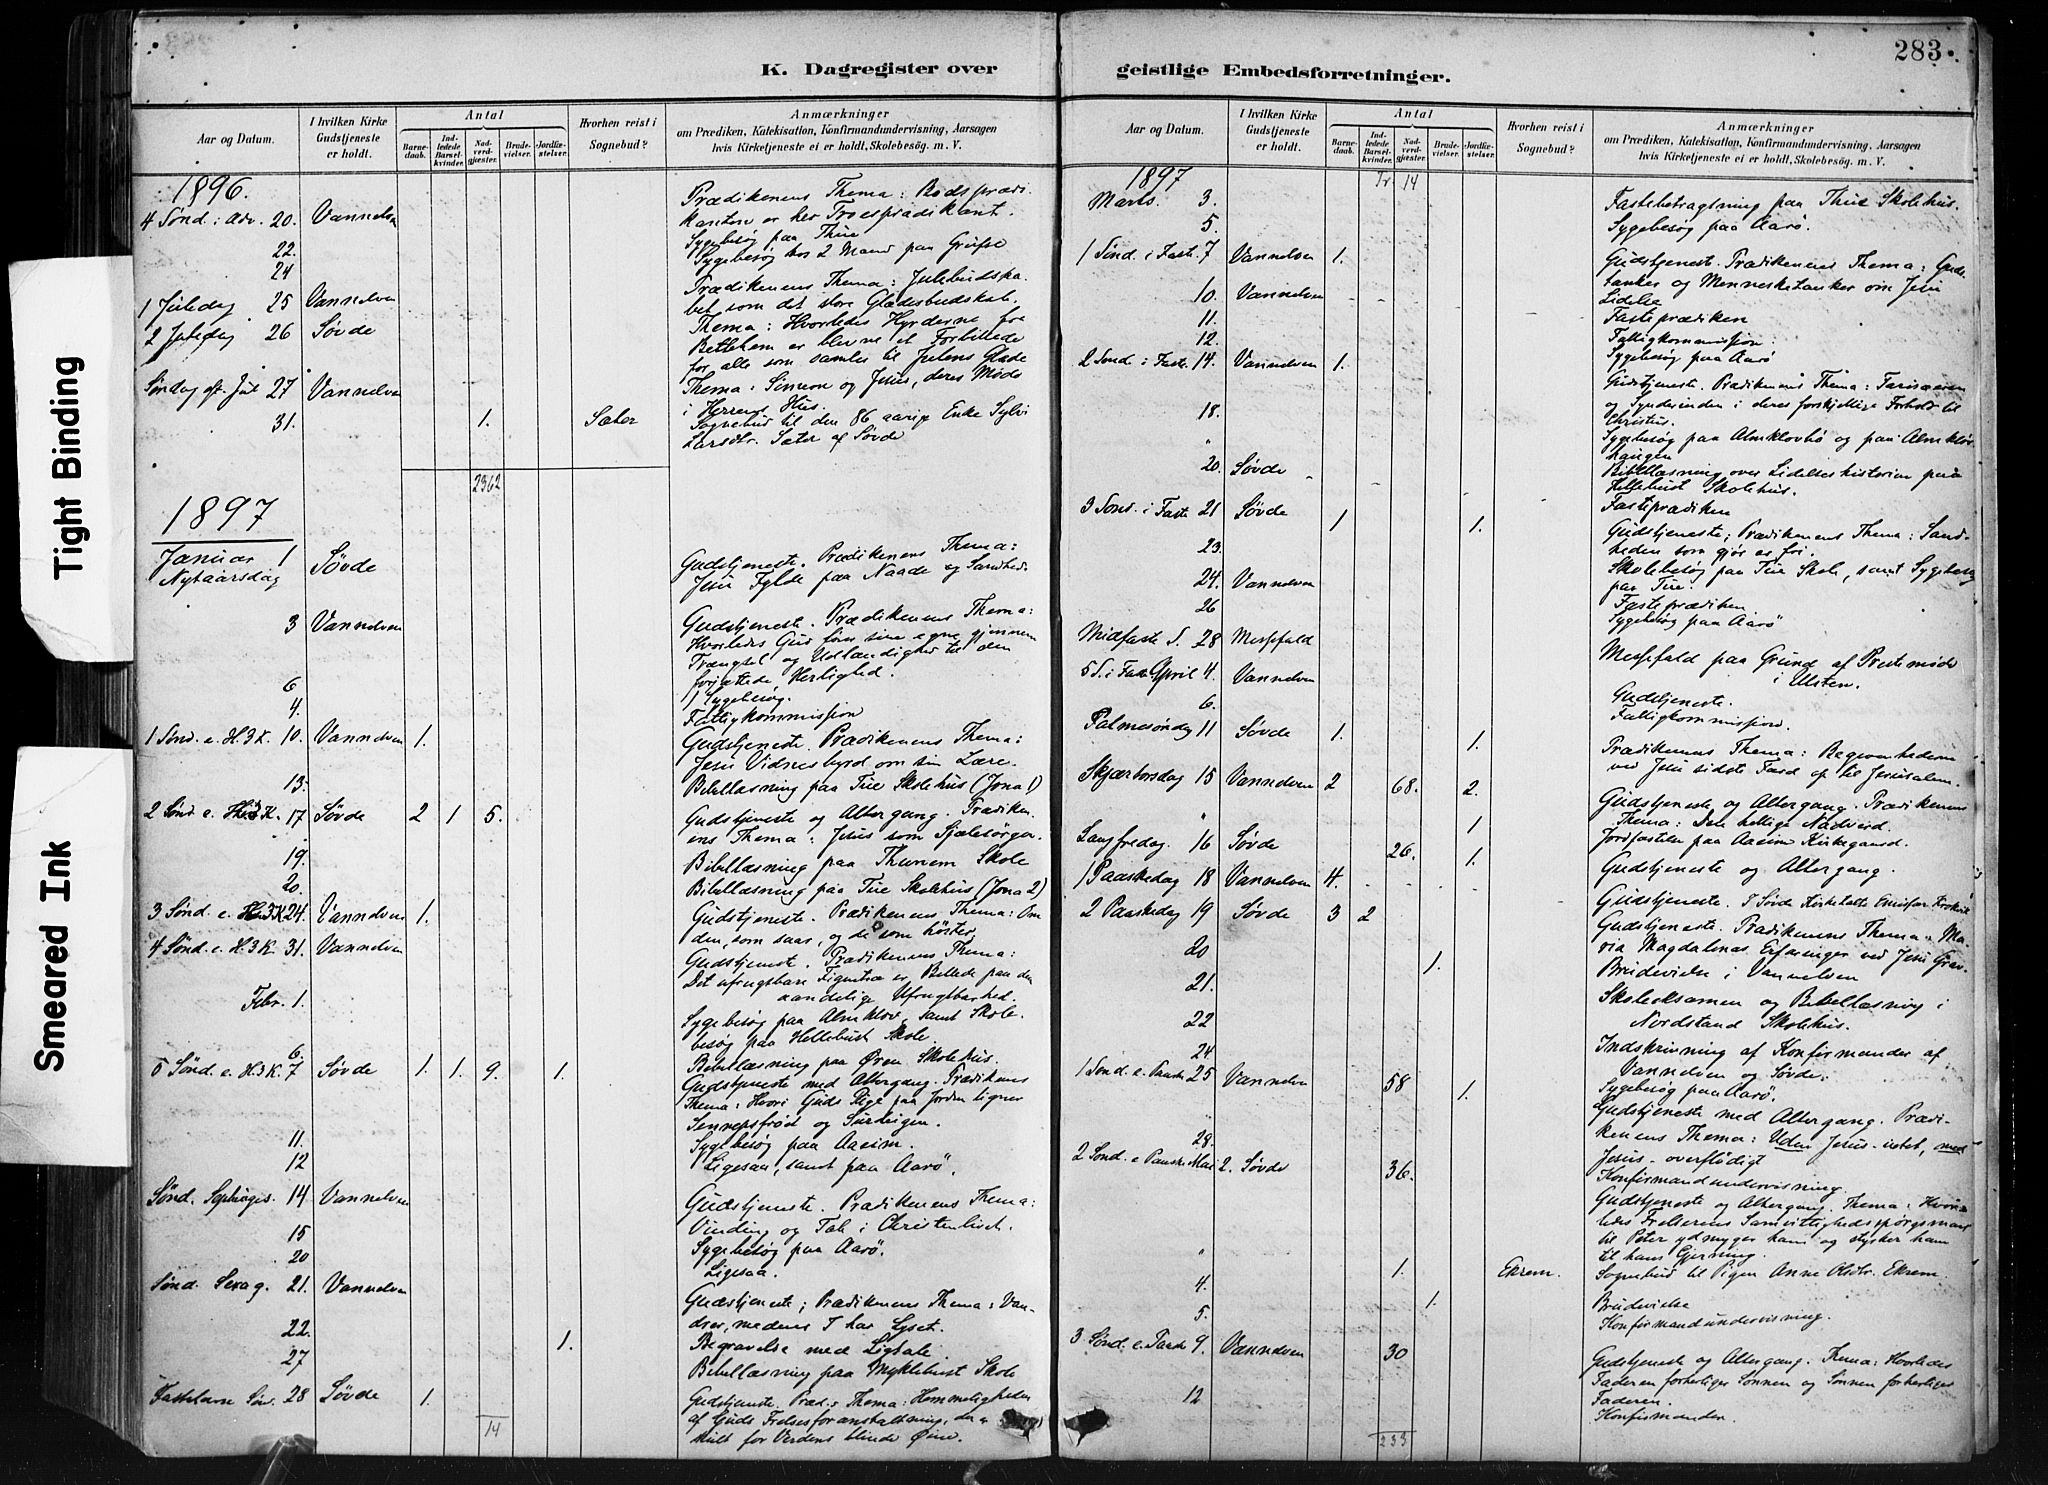 283.
K. Dagregister over
geistlige Embedsforretninger.
Aar og Datum.
I hvilken Kirke
Gudstjeneste
er holdt.
Antal
Barne-
daab.
Ind-
ledede
Barsel-
kvinder.
Nad-
verd-
gjæster.
Brude-
vielser.
Jordfæ-
stelser.
Hvorhen reist i
Sognebud?
Anmærkninger
om Prædiken, Katekisation, Konfirmandundervisning, Aarsagen
hvis Kirketjeneste ei er holdt, Skolebesøg. m. V.
1896.
4 Sønd. i Adv. 20. Vannelven Prædikenens Thema: Bodsprædi-
kanten er her Troesprædikant.
22. Sygebesøg paa Thue
24 Sygebesøg hos 2 Mand paa
1 Juledag 25 Vannelven Prædikenens Thema: Julebudska-
bet som det store Glædesbudskab.
2 Juledag 26 Søvde Thema: Hvorledes Hyrderne fra
Betlehem er blevne et Forbillede
for alle som samles til Julens Glæde
Søndag eft. Jul 27 Vannelven Thema: Simeon og Jesus, deres Møde
i Herrens Hus.
31. 1. Sæter Sognebud til den 86 aarige Enke Sylvi
Larsdtr. Sæter af Søvde
2362
1897
Januar 1
Nytaarsdag Søvde Gudstjeneste. Prædikenens Thema:
Jesu Fylde paa Naade og Sandhed.
3 Vannelven Gudstjeneste. Prædikenens Thema:
Hvorledes Gud fører sine egne gjennem
Trængsel og Udlændighed til den
forjættede Herlighed.
6 1 Sygebesøg.
4. Fattigkommission
1 Sønd. e. H.3K. 10. Vannelven 1. Gudstjeneste. Prædikenens Thema:
Jesu Vidnesbyrd om sin Lære.
13. Bibellæsning paa Tue Skolehus (Jona 1)
2 Sønd. e. H.3K. 17 Søvde 2 1 5. Gudstjeneste og Altergang. Prædiken-
ens Thema: Jesus som Sjælesørger.
19. Bibellæsning paa Thunem Skole
20. Bibellæsning paa Tue Skolehus (Jona 2)
3 Sønd. e. H.3K. 24. Vannelven 1. Gudstjeneste. Prædikenens Thema: Om
den, som saar, og de som høster,
4 Sønd. e. H.3K. 31. Vannelven Gudstjeneste. Prædikenens Thema:
Det ufrugtbare Figentræ er Billede paa den
aandelige Ufrugtbarhed.
Febr. 1. Sygebesøg paa Almklov, samt Skole-
besøg paa Hellebust Skole.
6. Bibellæsning paa Øren Skolehus.
5 Sønd. e. H.3K. 7 Søvde 1. 1. 9. 1. Gudstjeneste med Altergang. Prædikens
Thema: Hvori Guds Rige paa Jorden ligner
Sennepsfrøet og Surdeigen.
11. Sygebesøg paa Aaeim.
12 Ligesaa, samt paa Aarø.
Sønd. Septuages. 14 Vannelven Gudstjeneste. Prædikenens Thema:
Vinding og Tab i Christenlivet.
15 Sygebesøg paa Aarø.
20 Ligesaa.
Sønd. Sexag. 21. Vannelven Gudstjeneste; Prædikenens Thema: Van-
drer, medens I har Lyset.
22. 1. Begravelse med Ligtale
27 Bibellæsning paa Myklebust Skole
Fastelavns Søn. 28 Søvde 1. Gudstjeneste. Præd.s Thema: Hemmeligheden
af Guds Frelsesforanstaltning,
skult for Verdens blinde Øine.
14
Aar og Datum.
I hvilken Kirke
Gudstjeneste
er holdt.
Antal
Barne-
daab.
Ind-
ledede
Barsel-
kvinder.
Nad-
verd-
gjæster.
Brude-
vielser.
Jordfæ-
stelser.
Hvorhen reist i
Sognebud?
Anmærkninger
om Prædiken, Katekisation, Konfirmandundervisning, Aarsagen
hvis Kirketjeneste ei er holdt, Skolebesøg. m. V.
1897 Tr. 14
Marts. 3. Fastebetragtning paa Thue Skolehus.
5. Sygebesøg paa Aarø.
1 Sønd. i Faste 7 Vannelven 1. Gudstjeneste. Prædikenens Thema: Guds
tanker og Mennesketanker om Jesu
Lidelse
10. Vannelven Fasteprædiken
11. Fattigkommission.
12. Sygebesøg paa Aarø
2 Sønd. i Faste 14. Vannelven 1. Gudstjeneste. Prædikenens Thema: Farisæeren
og Synderinden i deres forskjellige Forhold til
Christus.
18. Sygebesøg paa Almklovbø og paa Almklov-
haugen
" Bibellæsning over Lidelseshistorien paa
Hellebust Skolehus.
20. Søvde Fasteprædiken
3 Sønd. i Faste 21 Søvde 1 1. Gudstjeneste; Prædikenens Thema: Sand-
heden som gjør os fri.
23. Skolebesøg paa Tue Skole, samt Sygebesøg
paa Tue.
24. Vannelven Fasteprædiken.
26 Sygebesøg paa Aarø
Midfaste S. 28 Messefald Messefald paa Grund af Prestemøde
i Ulsten.
5 S. i Fast. April 4. Vannelven Gudstjeneste.
6. Fattigkommission.
Palmesøndag 11 Søvde 1. 1. Prædikenens Thema: Begivenhederne
ved Jesu sidste Færd op til Jerusalem.
Skjærtorsdag 15 Vannelven 2 68. 2. Gudstjeneste og Altergang. Prædikenens
Thema: Den hellige Nadverd.
" 1 Jordfæstelse paa Aaeim Kirkegaard.
Langfredag. 16 Søvde 26. 1. Gudstjeneste og Altergang.
1 Paaskedag 18 Vannelven 4. Gudstjeneste. I Søvde Kirke talte
2 Paaskedag 19 Søvde 3 2 Gudstjeneste. Prædikenens Thema: Ma-
ria Magdalenas Erfaringer ved Jesu Grav.
20 1. Brudevielse i Vannelven
21. Skoleeksamen og Bibellæsning i
Nordstrand Skolehus.
22 Indskrivning af Konfirmander af
Vannelven og Søvde.
24 Sygebesøg paa Aarø.
1 Sønd. e. Paaske 25 Vannelven 58 1. Gudstjeneste med Altergang. Prædi-
kenens Thema: Uden Jesus - intet, med
Jesus - overflødigt
28. Konfirmandundervisning.
2 Sønd. e Paaske Mai 2. Søvde 36. Gudstjeneste og Altergang. Thema: Hvor-
ledes Frelserens Samvittighedsspørgsmaal
til Peter ydmyger ham og styrker ham
til hans Gjerning.
" 1. Ekrem. Sognebud til Pigen Anne Olsdtr. Ekrem.
4. 1. Brudevielse
5. Konfirmandundervisning.
3 Sønd. e. Paaske 9. Vannelven 30 Gudstjeneste og Altergang. Tema: Hvorledes
Faderen forherliger Sønnen og Sønnen forherliger
Faderen.
12 Konfirmander.
233
Tight Binding
Smeared Ink